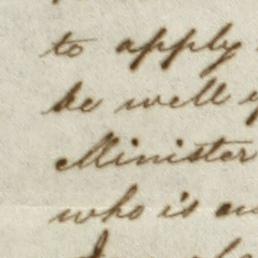 to apply
be well
Minister
who is